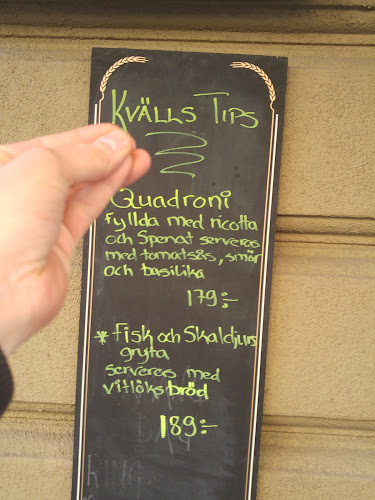 Kvälls Tips
Quadroni
fyllda med ricotta
och Spenat serveras
med tomatsås, smör
och basilika
179:-
* Fisk och Skaldjurs
gryta
serveras med
vitlöksbröd
189:-
RING